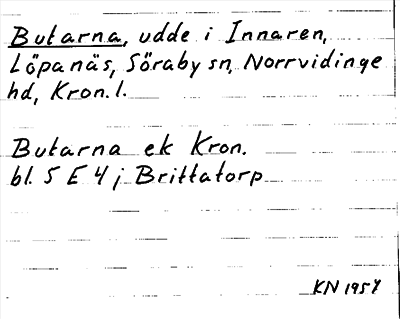 Butarna, udde i Innaren,
Löpanäs, Söraby sn, Norrvidinge
hd, Kron. l.
Butarna ek Kron.
bl. 5 E 4 j Brittatorp
KN 1954